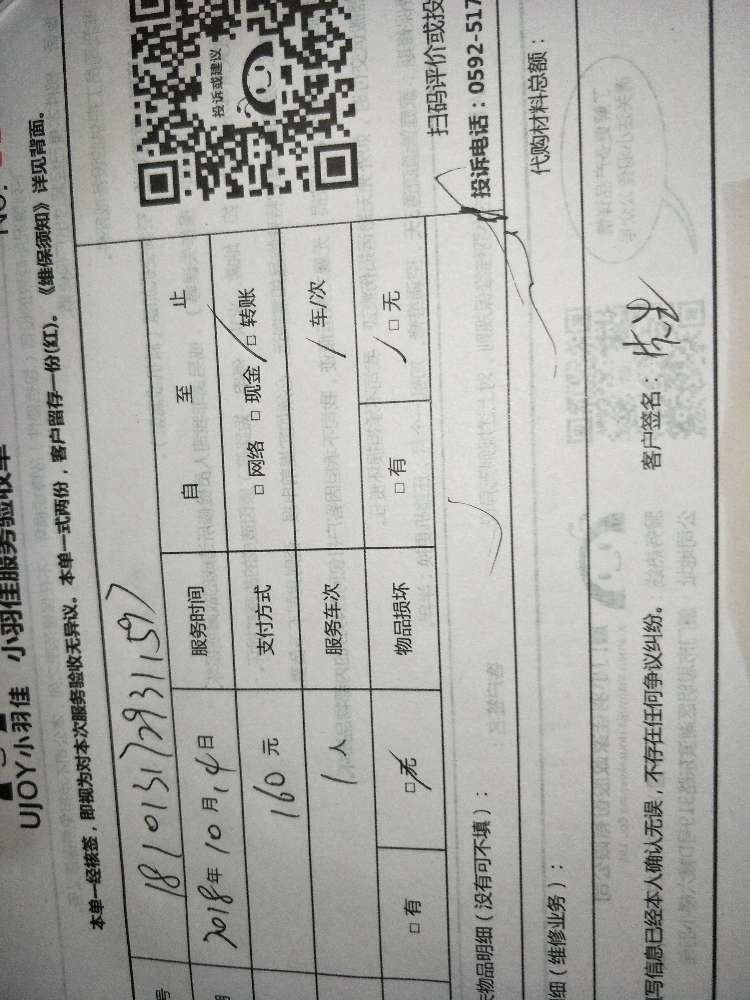 UJOY小羽佳 小羽佳服务验收单
本单一经核签，即视为对本次服务验收无异议。本单一式两份，客户留存一份(红)。《维保须知》详见背面。
号 181013172931159
2018年10月14日 服务时间 自 至 止
160元 支付方式 □网络 □现金 □转账
1人 服务车次 / 车/次
□有 □无 物品损坏 □有 □无
投诉或建议
扫码评价或投
投诉电话：0592-517
物品明细（没有可不填）：
细（维修业务）：
代购材料总额：
写信息已经本人确认无误，不存在任何争议纠纷。 客户签名：